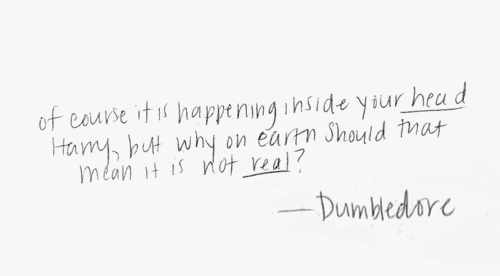 of course it is happening inside your head
Harry, but why on earth should that
mean it is not real?
— Dumbledore